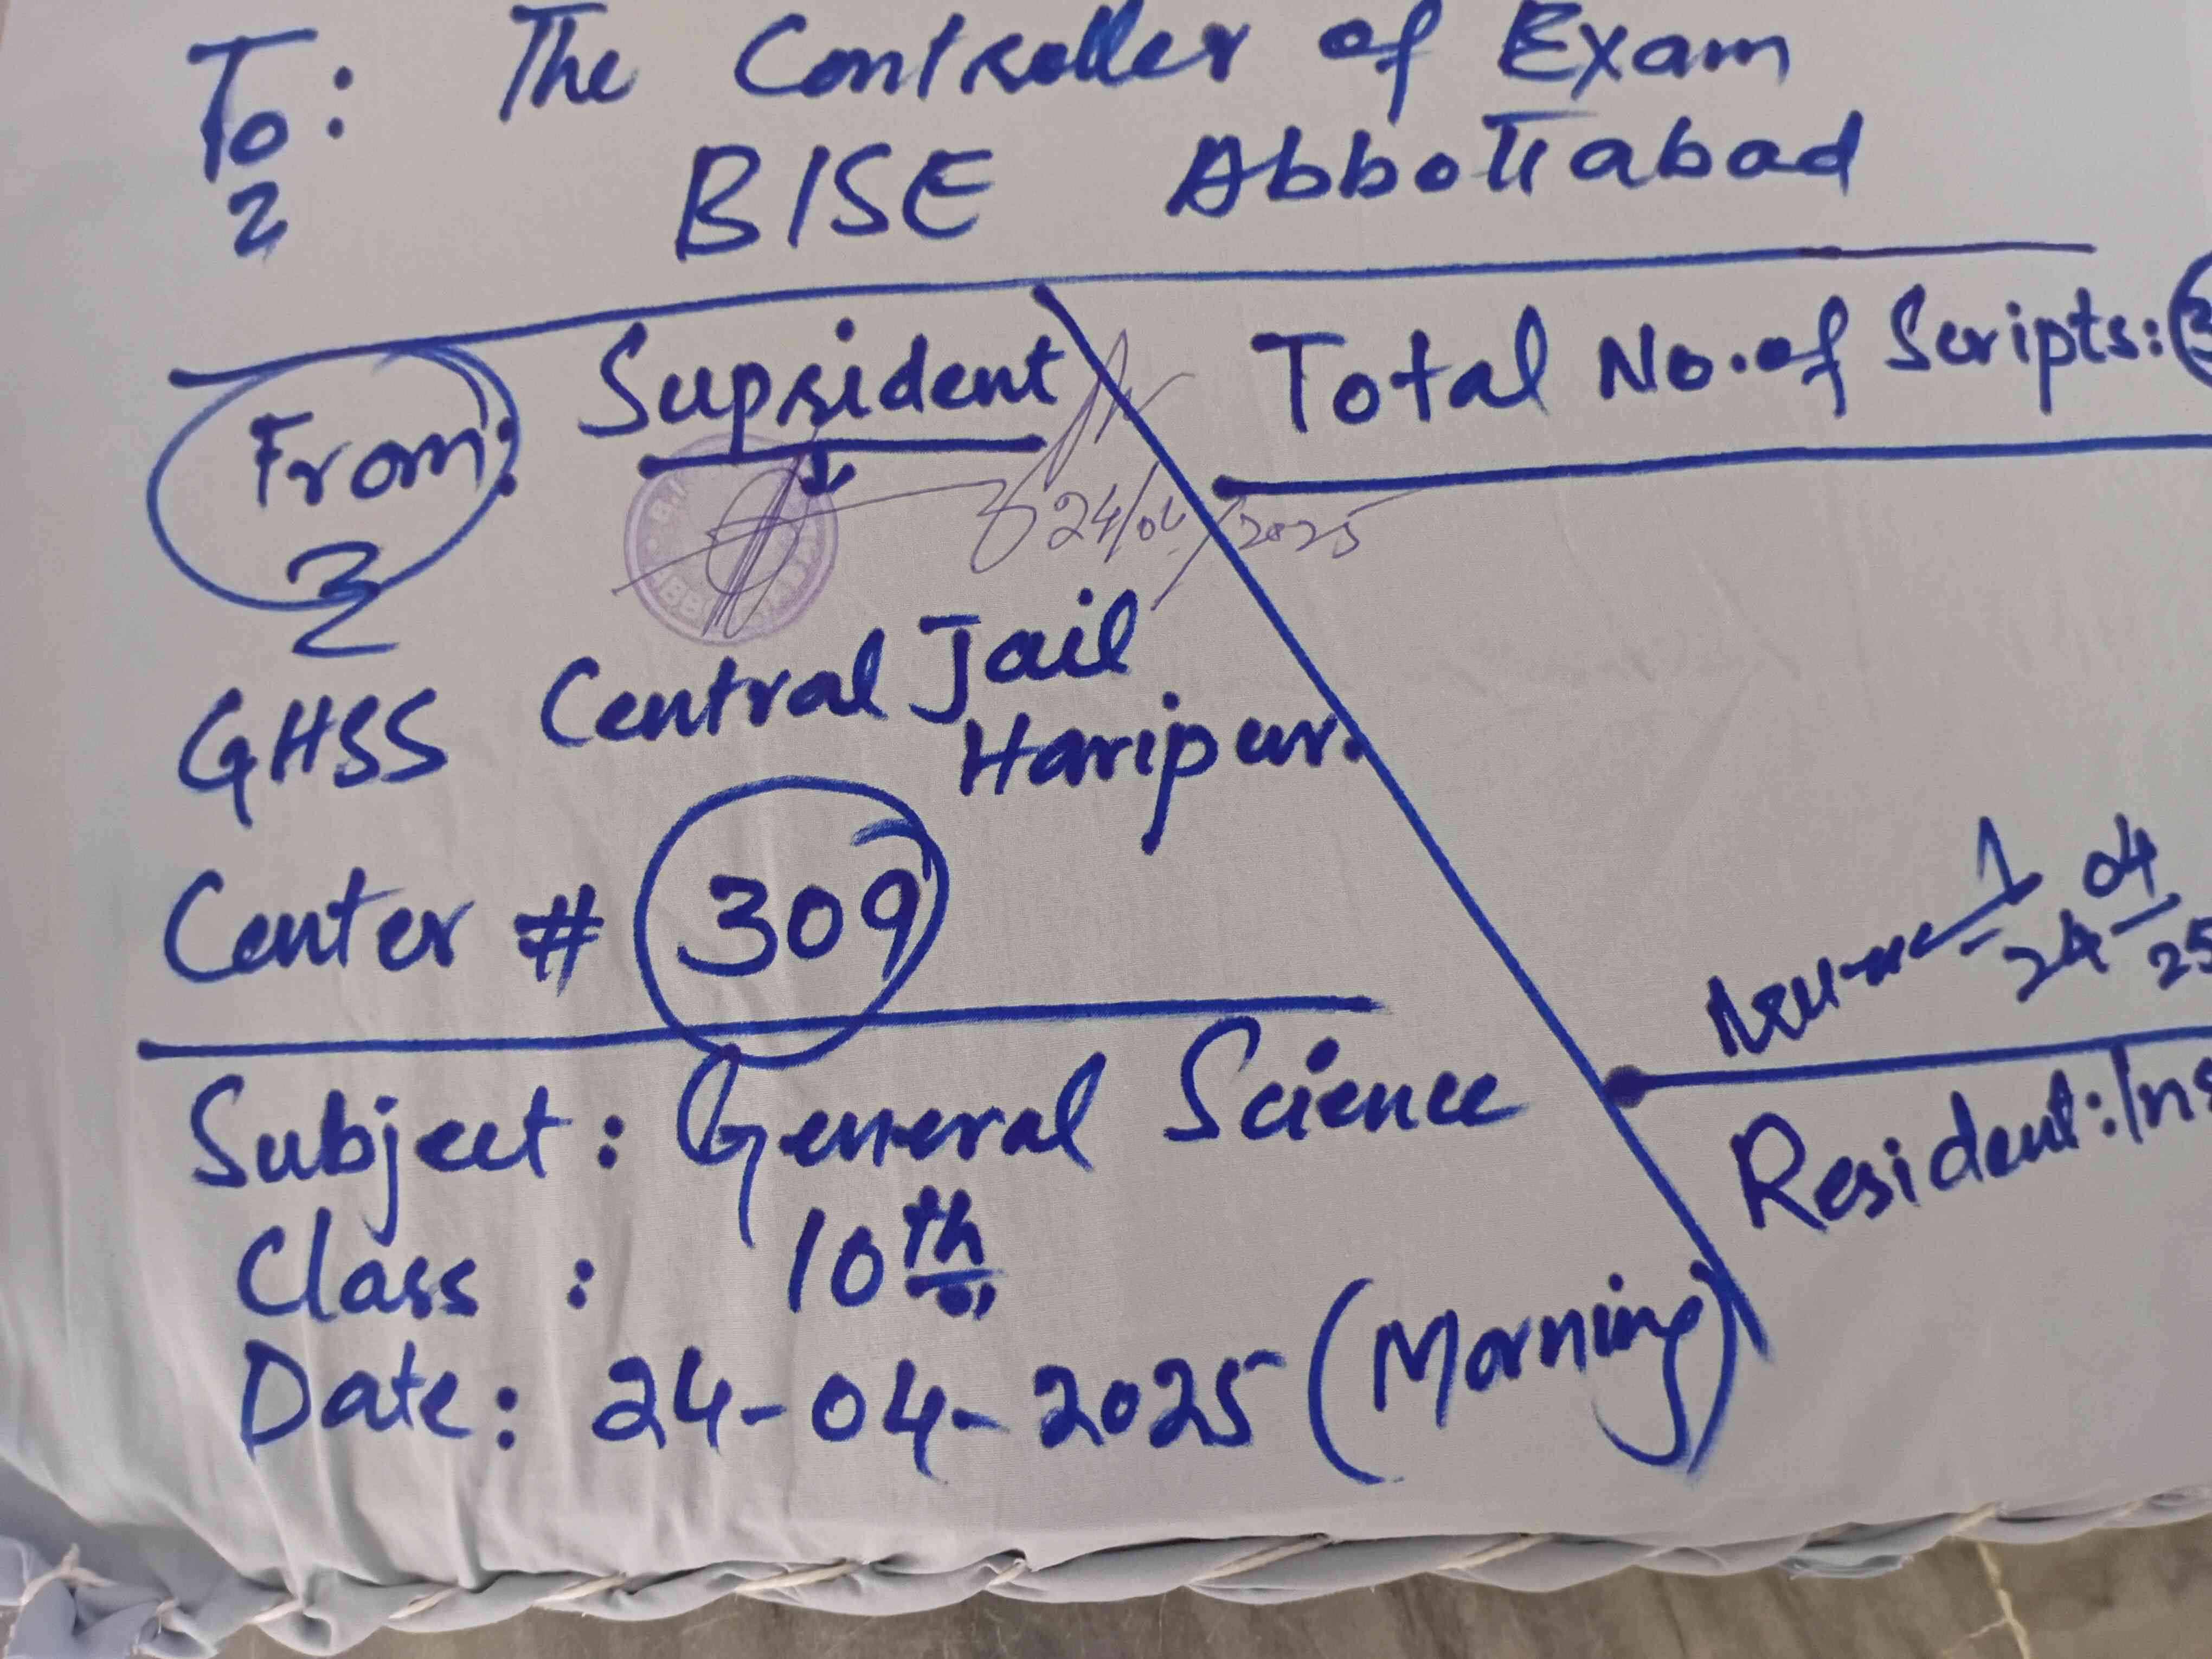 To: The Controller of Exam
BISE Abbottabad
From: Supsident
24/04/2025
GHSS Central Jail
Haripur.
Center # 309
Subject: General Science
Class: 10th
Date: 24-04-2025 (Morning)
Total No. of Scripts:
24 04 25
Resident: Ins